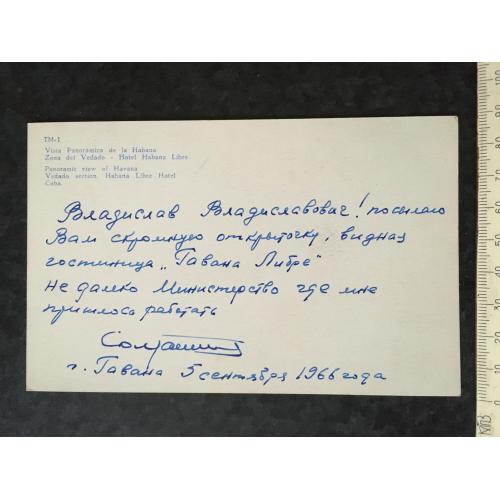 TM-1
Vista Panoramica de la Habana
Zona del Vedado - Hotel Habana Libre.
Panoramic view of Havana
Vedado section, Habana Libre Hotel
Cuba.
Владислав Владиславович! посылаю
Вам скромную открыточку, видна
гостиница „Гавана Либре"
не далеко Министерство где мне
пришлось работать
г. Гавана 5 сентября 1966 года